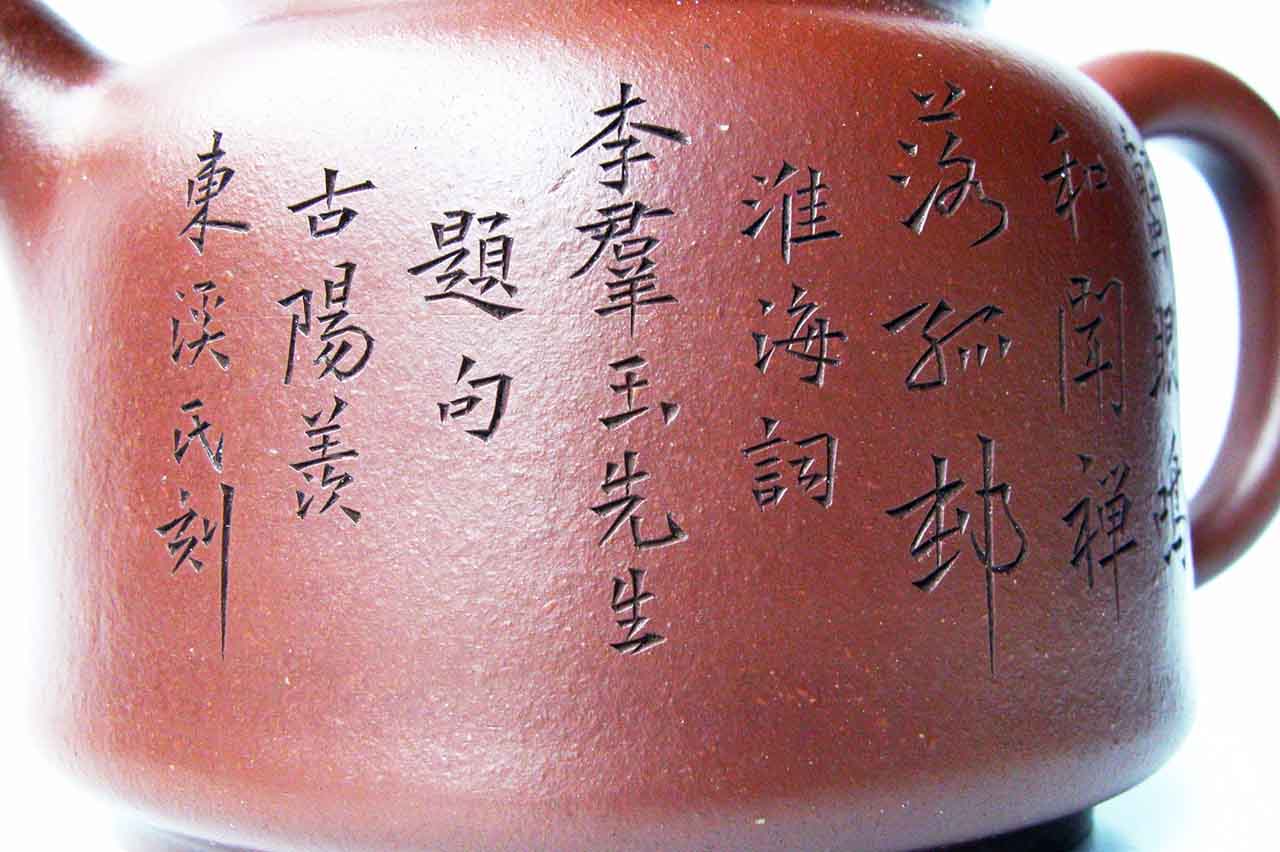 和聞禪
落孤邨
淮海詞
李羣玉先生
題句
古陽羨
東溪氏刻